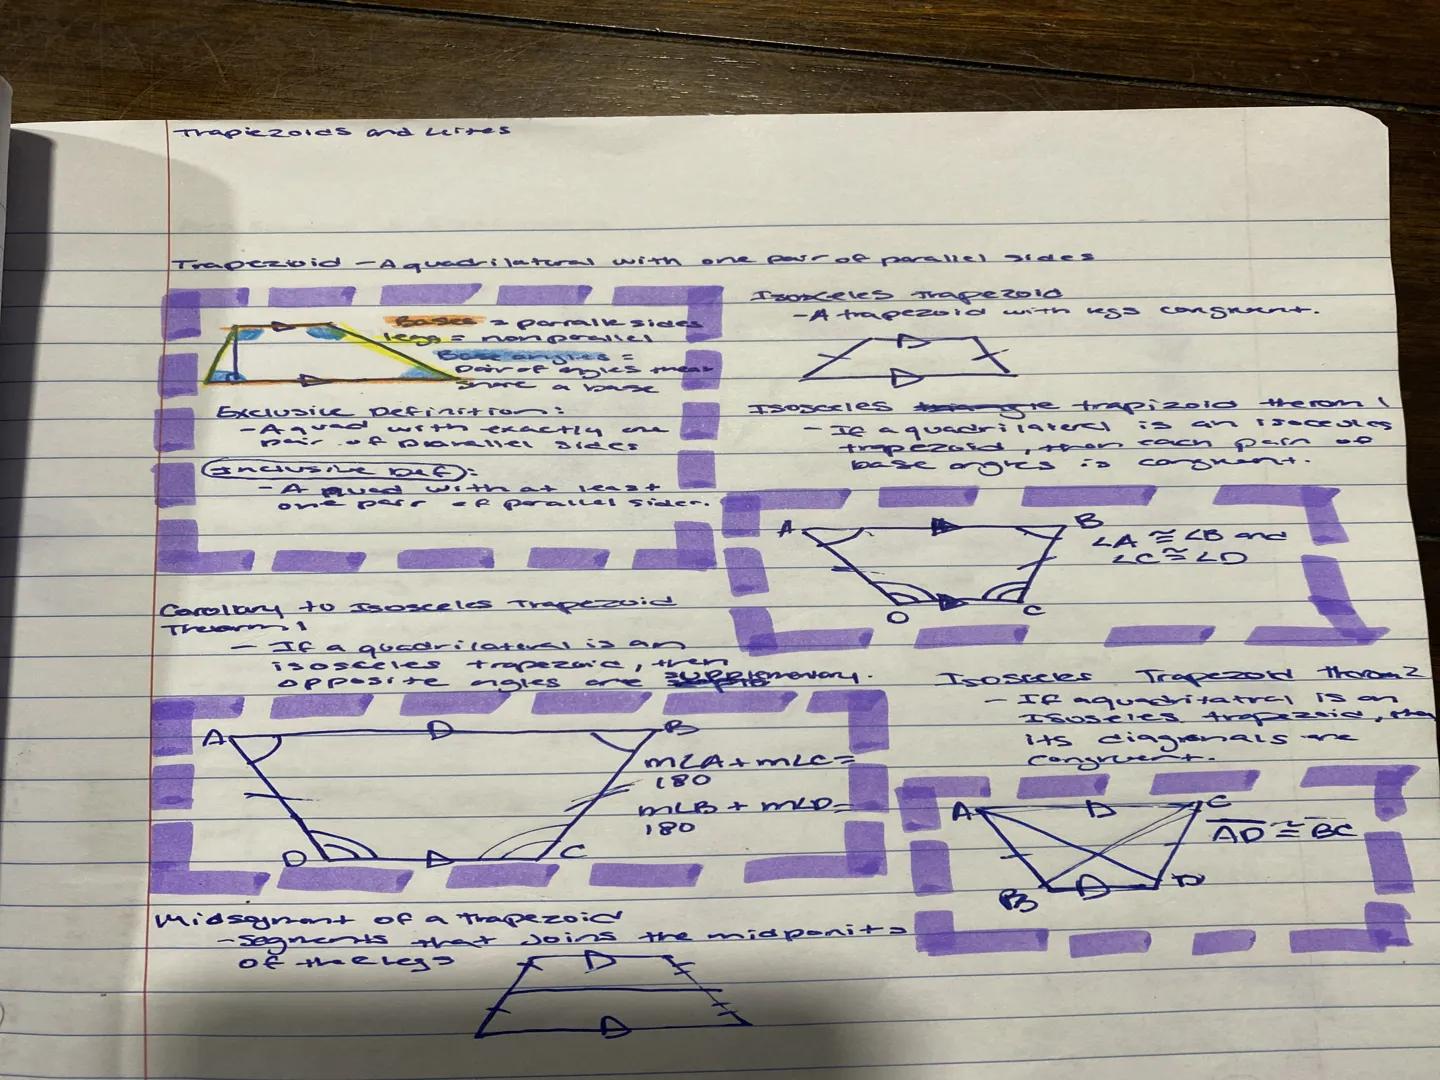 Trapiezoids and kites
Trapezoid - A quadrilateral with one pair of parallel sides
Bases = parralle sides
legs = nonparallel
Base angles =
pair of angles that
share a base
Exclusive Definition:
- A quad with exactly one
pair of parallel sides
Inclusive Def:
- A quad with at least
one pair of parallel sides.
Isosceles trapezoid
- A trapezoid with legs congruent.
Isosceles trapizoid therom 1
- If a quadrilateral is an isoceles
trapezoid, then each pair of
base angles is congruent.
A
B
∠A ≅ ∠B and
∠C ≅ ∠D
D
C
Carollary to Isosceles Trapezoid
Therorm 1
- If a quadrilateral is an
isosceles trapezoid, then
opposite angles are supplementary.
A
B
m∠A + m∠C =
180
m∠B + m∠D =
180
D
C
Isosceles Trapezoid therom 2
- If aquadrilatral is an
Isoseles trapezoid, then
its diagonals are
congruent.
A
C
AD ≅ BC
B
D
Midsegment of a trapezoid
- segments that joins the midponits
of the legs